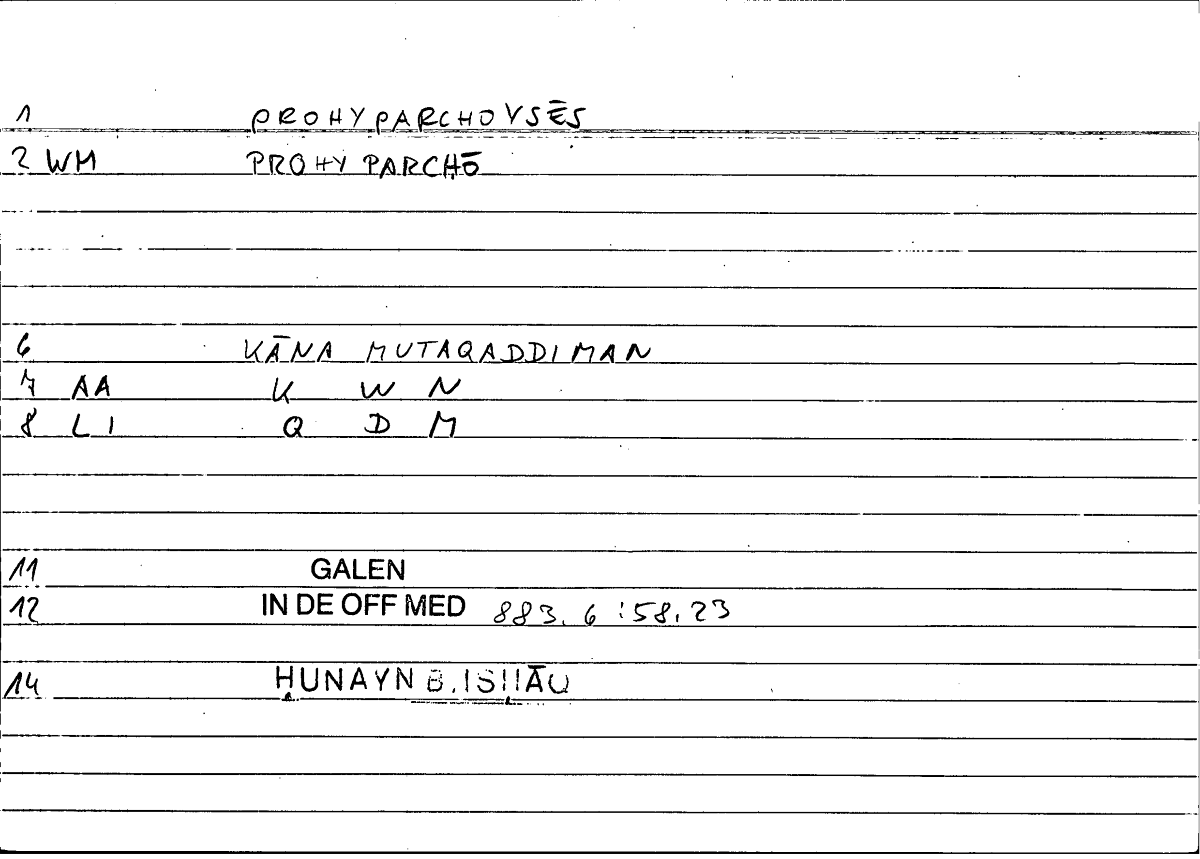 1 PROHYPARCHOVSĒS
2 WM PROHYPARCHŌ
6 KĀNA MUTAQADDIMAN
7 AA K W N
8 LI Q D M
11 GALEN
12 IN DE OFF MED 883.6:58.23
14 ḤUNAYN B. ISḤĀQ